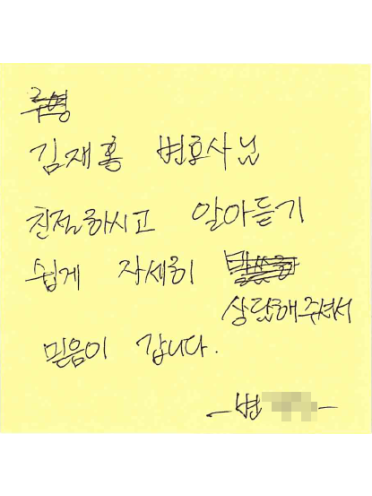 김재홍 변호사님
친절하시고 알아듣기
쉽게 자세히
상담해주셔서
믿음이 갑니다.
-변